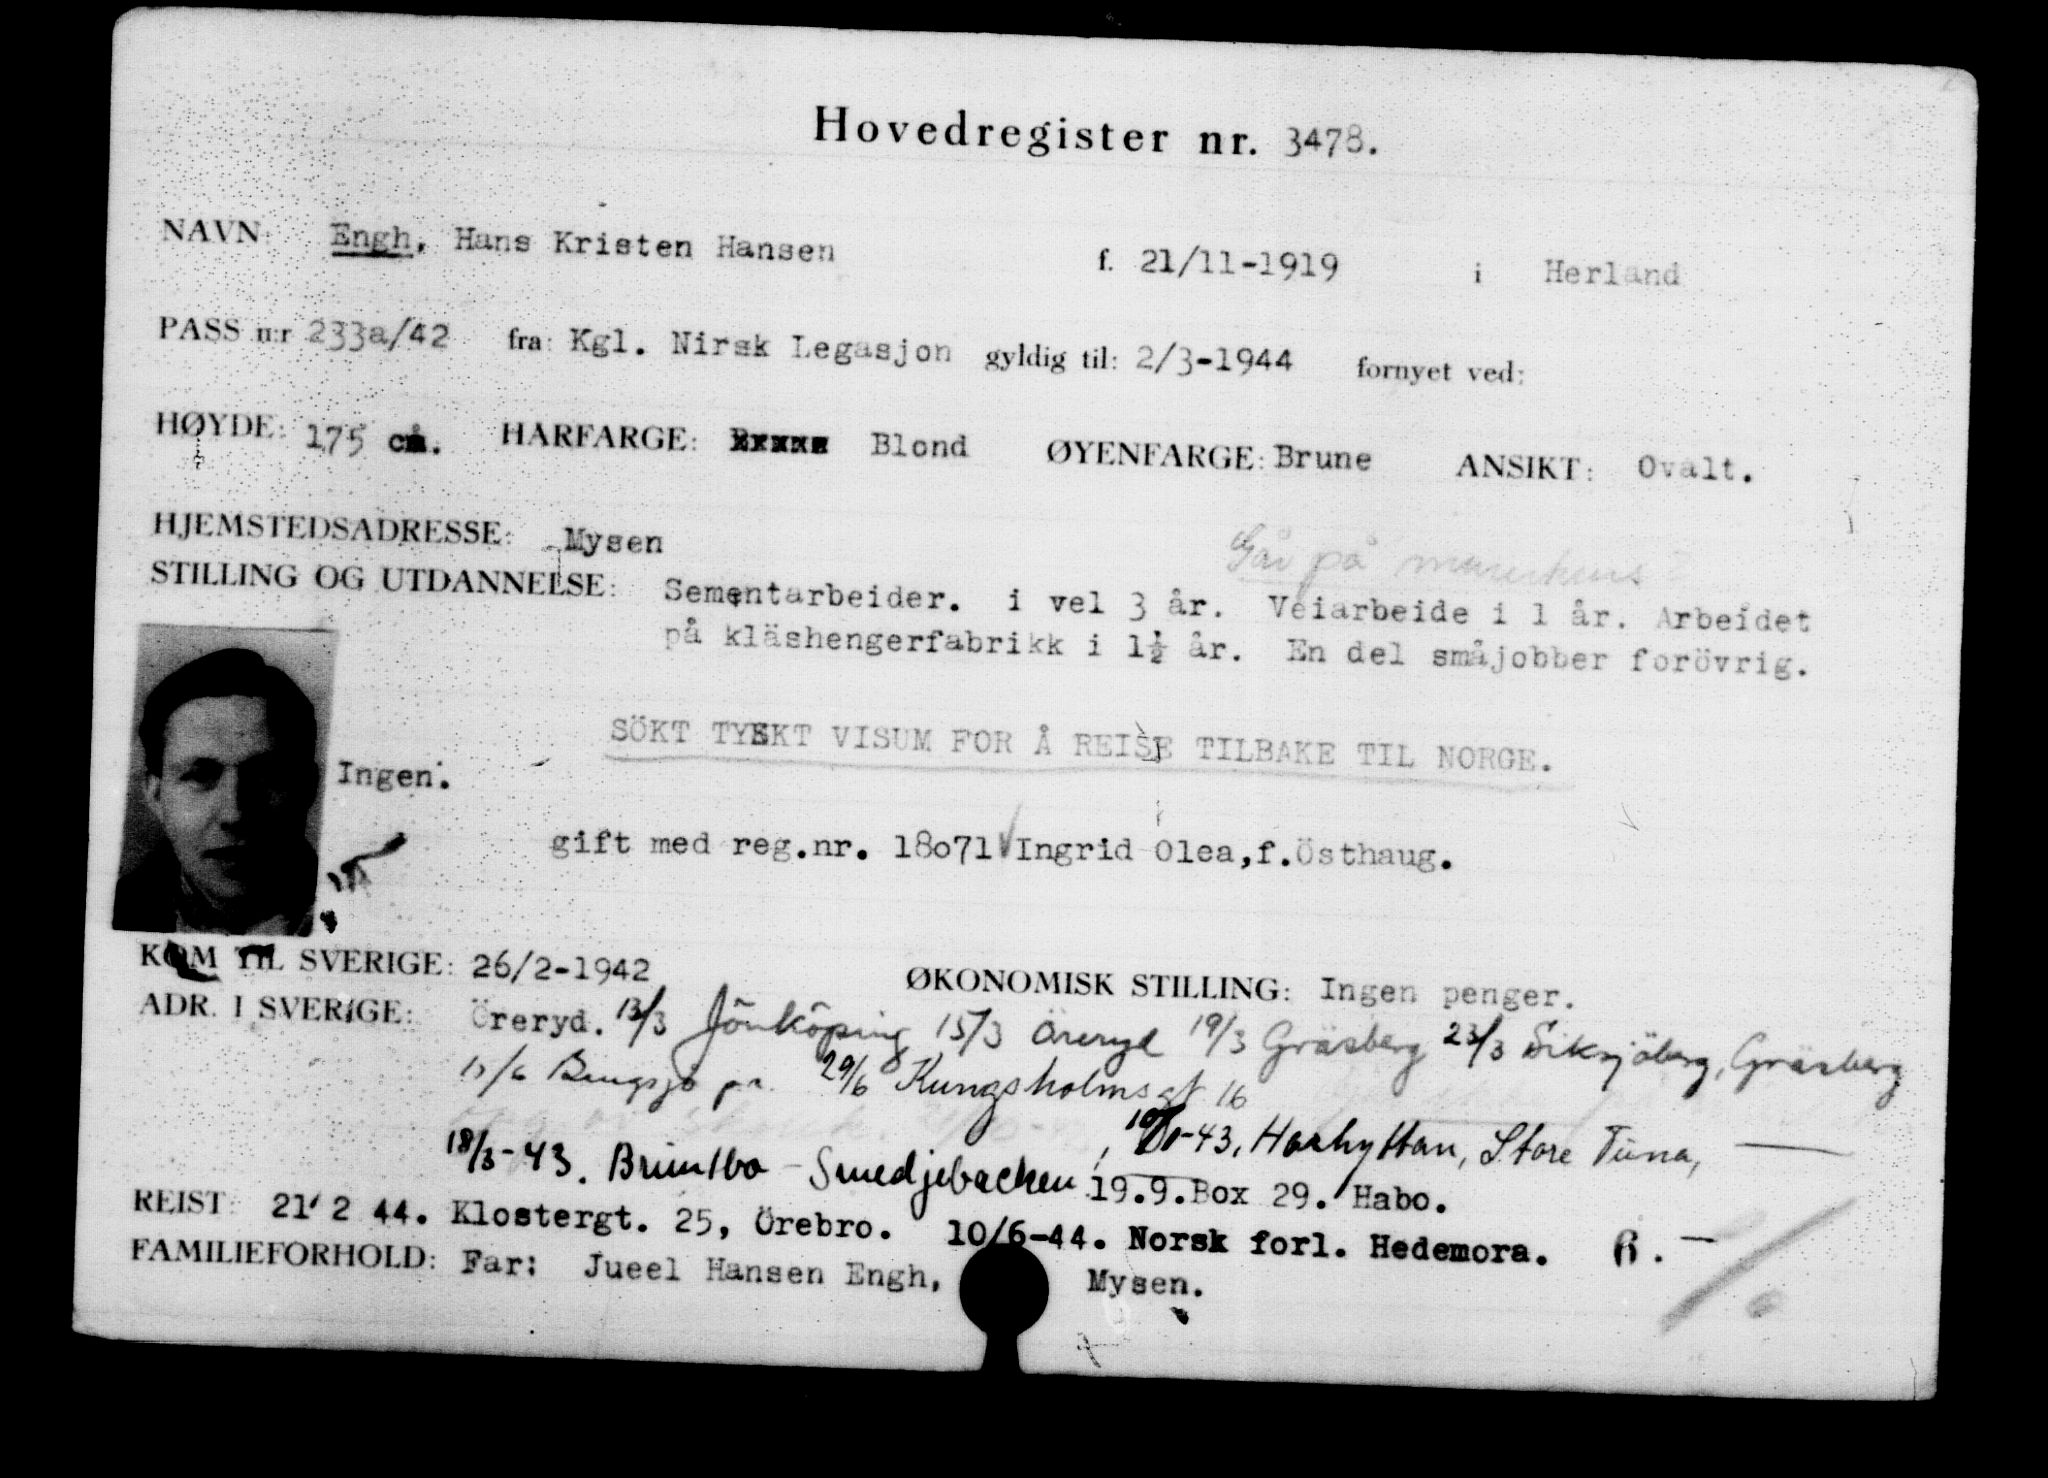 Hovedregister nr. 3478.
NAVN: Engh, Hans Kristen Hansen f. 21/11-1919 i Herland
PASS n:r 233a/42 fra: Kgl. Nirsk Legasjon gyldig til: 2/3-1944 fornyet ved:
HØYDE: 175 cm. HARFARGE: Blond ØYENFARGE: Brune ANSIKT: Ovalt.
HJEMSTEDSADRESSE: Mysen
Går på murerkurs
STILLING OG UTDANNELSE: Sementarbeider. i vel 3 år. Veiarbeide i 1 år. Arbeidet
på kläshengerfabrikk i 1½ år. En del småjobber forövrig.
SÖKT TYSKT VISUM FOR Å REISE TILBAKE TIL NORGE.
Ingen.
gift med reg.nr. 18071 Ingrid Olea, f. Östhaug.
KOM TIL SVERIGE: 26/2-1942 ØKONOMISK STILLING: Ingen penger.
ADR. I SVERIGE: Öreryd. 13/3 Jönköping 15/3 Öreryd 19/3 Gräsberg 23/3 Siksjöberg, Gräsberg
29/6 Kungsholmsgt 16
18/3-43. Smedjebacken, -43, Store Tuna,
19.9. Box 29. Habo.
REIST: 21/2 44. Klostergt. 25, Örebro. 10/6-44. Norsk forl. Hedemora. R. -
FAMILIEFORHOLD: Far: Jueel Hansen Engh, Mysen.